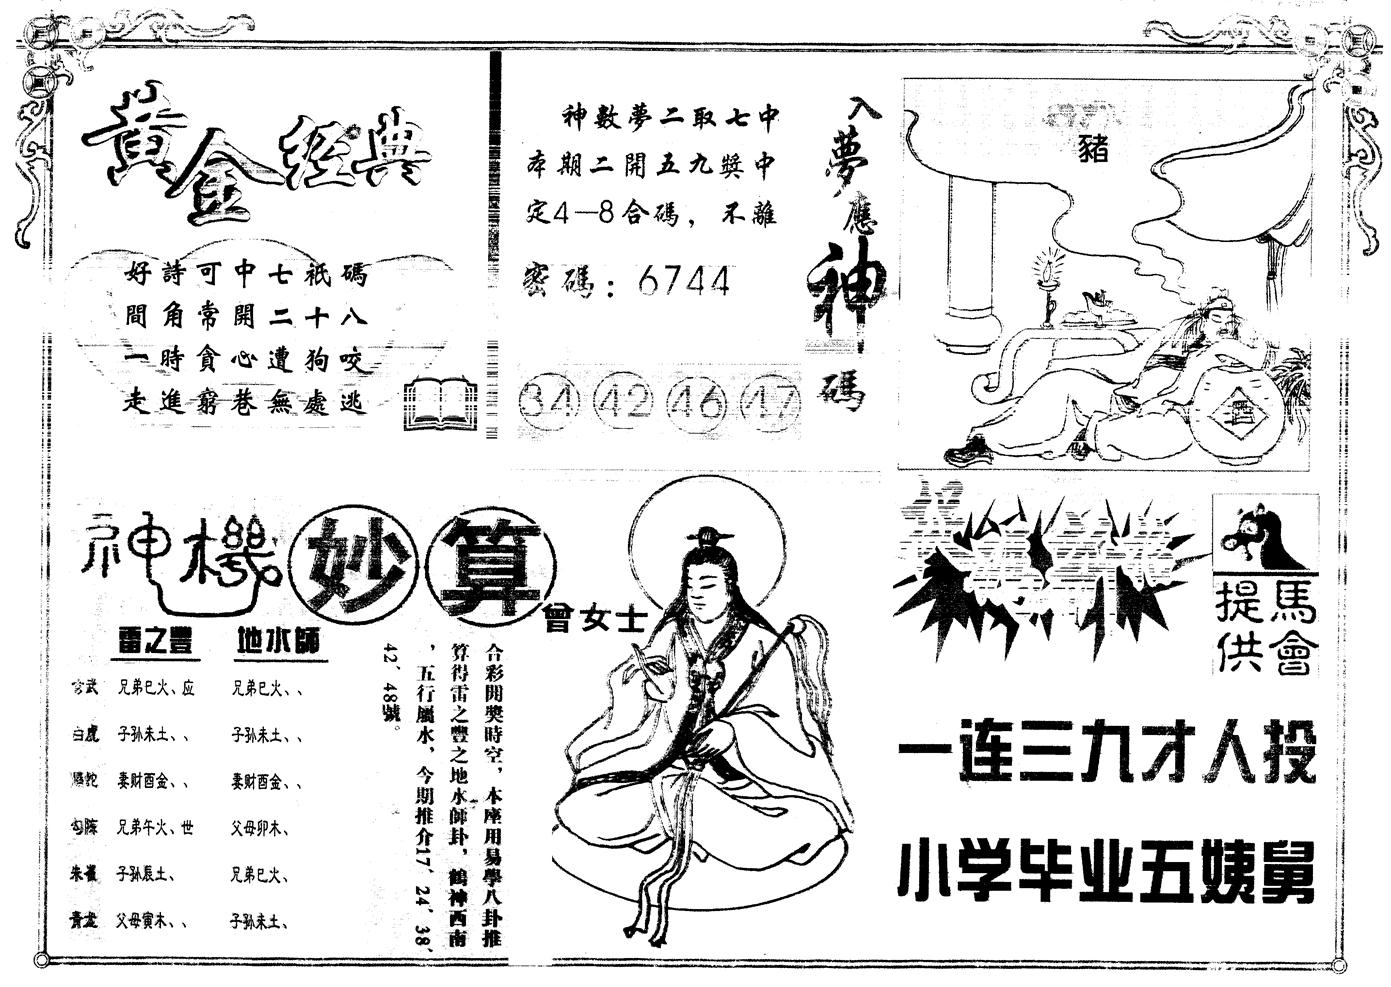 黃金經典
好詩可中七衹碼
間角常開二十八
一時貪心遭狗咬
走進窮巷無處逃
神數夢二取七中
本期二開五九獎中
定4—8合碼，不離
密碼：6744
34 42 46 47
入夢應神碼
豬
酒
神機妙算
曾女士
雷之豐 地水師
玄武 兄弟巳火、应 兄弟巳火、、
白虎 子孙未土、、 子孙未土、、
螣蛇 妻财酉金、、 妻财酉金、、
勾陈 兄弟午火、世 父母卯木、
朱雀 子孙辰土、 兄弟巳火、
青龙 父母寅木、、 子孙未土、
合彩開獎時空，本座用易學八卦推
算得雷之豐之地水師卦，鶴神西南
，五行屬水，今期推介17、24、38、
42、48號。
馬會
提供
一连三九才人投
小学毕业五姨舅